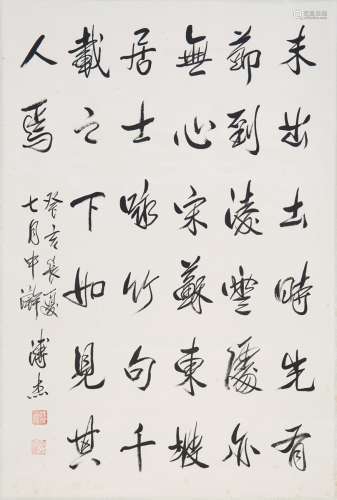 未出土時先有
節到凌雲處亦
無心宋蘇東坡
居士咏竹句千
載之下如見其
人焉
癸亥長夏
七月中澣 溥杰